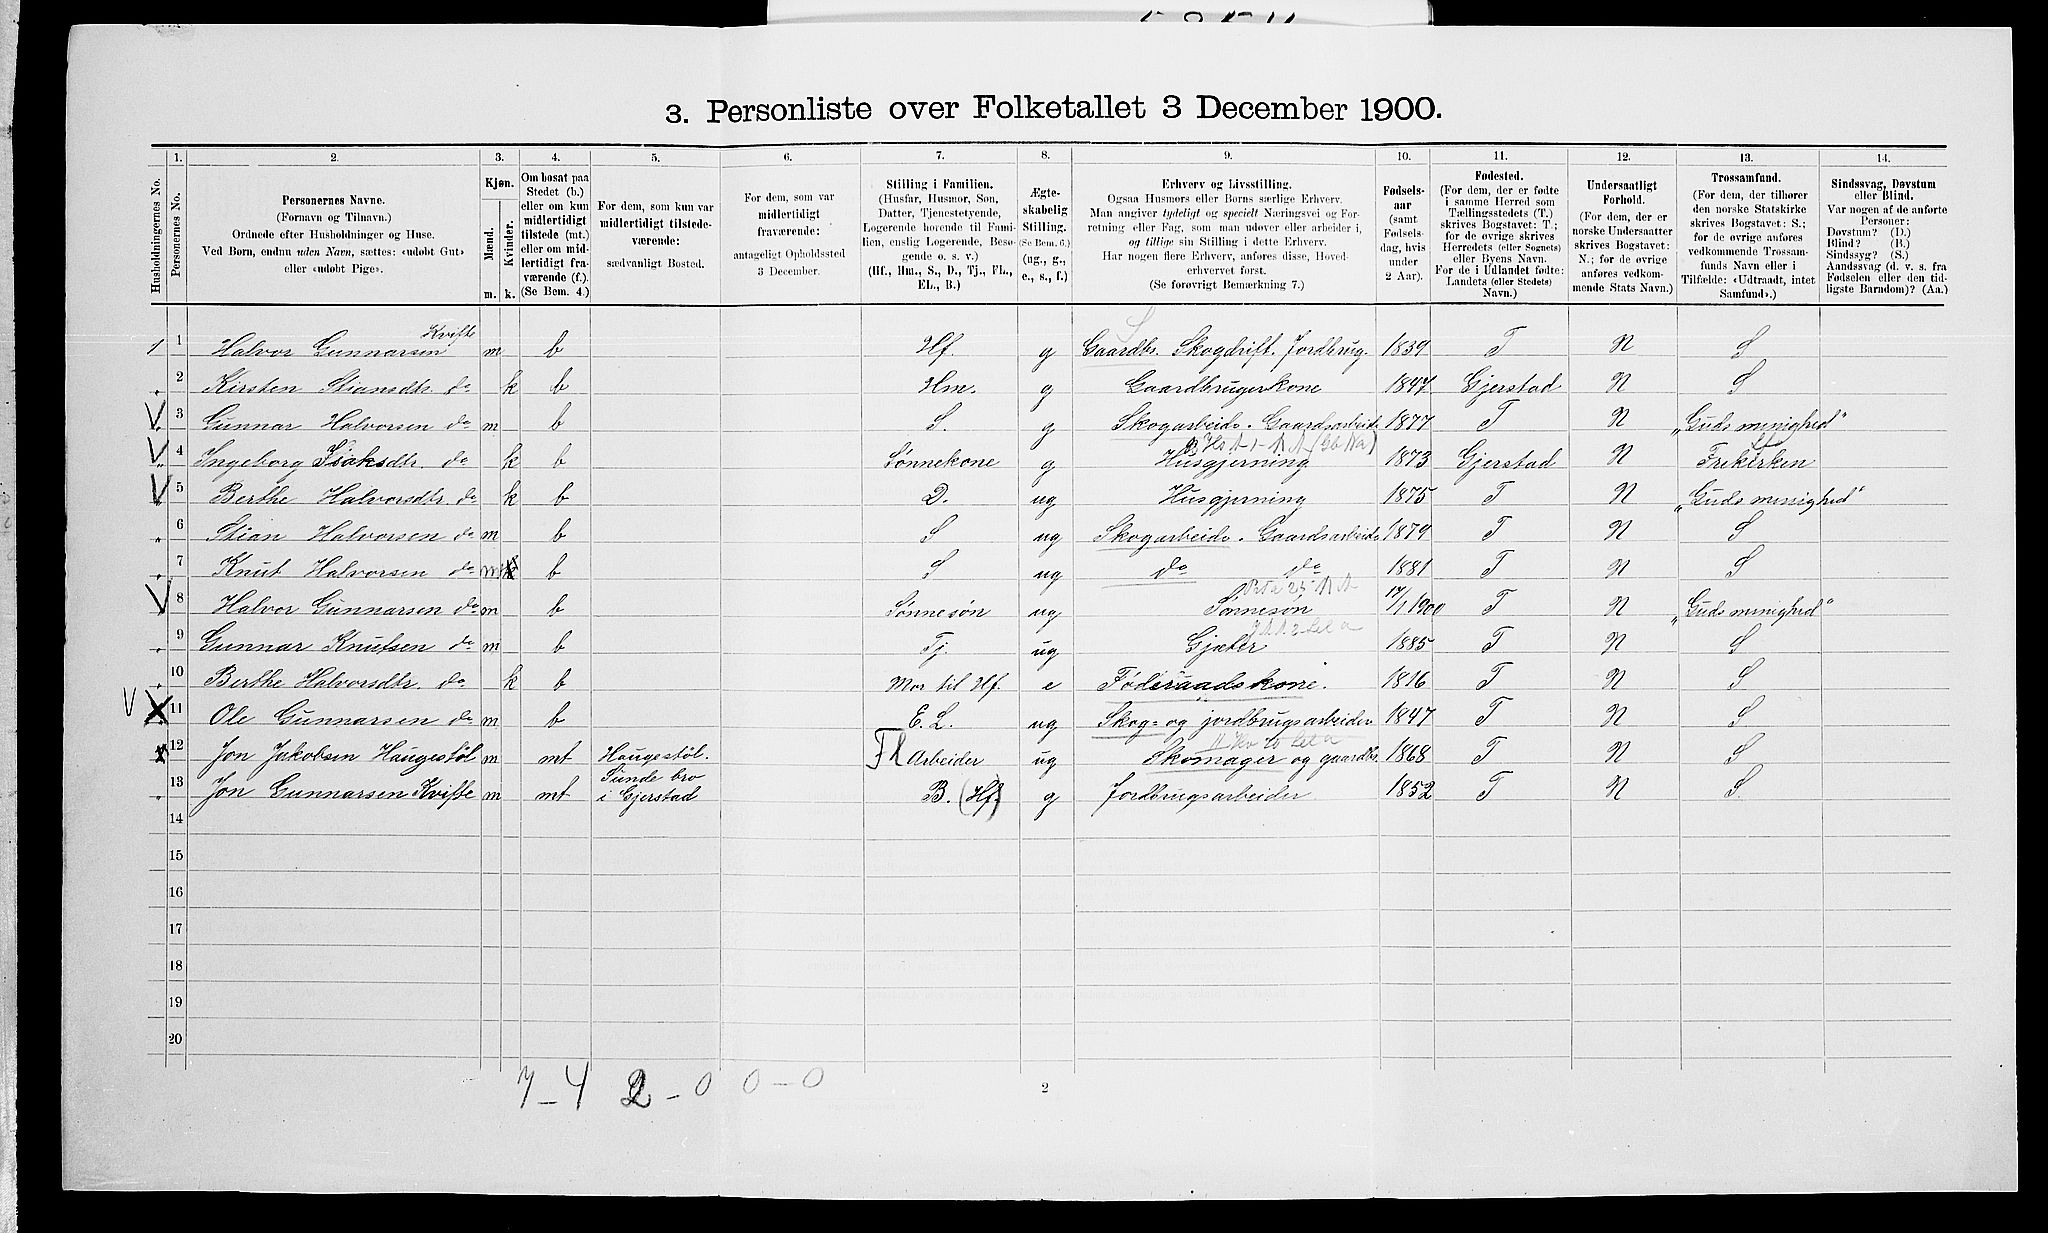 3. Personliste over Folketallet 3 December 1900.
Husholdningernes No.
1. Personernes No.
2. Personernes Navne. (Fornavn og Tilnavn.) Ordnede efter Husholdninger og Huse. Ved Børn, endnu uden Navn, sættes: «udøbt Gut» eller «udøbt Pige».
3. Kjøn. Mænd. m. Kvinder. k.
4. Om bosat paa Stedet (b.) eller om kun midlertidigt tilstede (mt.) eller om midlertidigt fraværende (f.). (Se Bem. 4.)
5. For dem, som kun var midlertidigt tilstedeværende: sædvanligt Bosted.
6. For dem, som var midlertidigt fraværende: antageligt Opholdssted 3 December.
7. Stilling i Familien. (Husfar, Husmor, Søn, Datter, Tjenestetyende, Logerende hørende til Familien, enslig Logerende, Besøgende o. s. v.) (Hf., Hm., S., D., Tj., FL., EL., B.)
8. Ægteskabelig Stilling. (Se Bem. 6.) (ug., g., e., s., f.)
9. Erhverv og Livsstilling. Ogsaa Husmors eller Børns særlige Erhverv. Man angiver tydeligt og specielt Næringsvei og Forretning eller Fag, som man udøver eller arbeider i, og tillige sin Stilling i dette Erhverv. Har nogen flere Erhverv, anføres disse, Hovederhvervet først. (Se forøvrigt Bemærkning 7.)
10. Fødselsaar (samt Fødselsdag, hvis under 2 Aar).
11. Fødested. (For dem, der er fødte i samme Herred som Tællingsstedets (T.) skrives Bogstavet: T.; for de øvrige skrives Herredets (eller Sognets) eller Byens Navn. For de i Udlandet fødte: Landets (eller Stedets) Navn.)
12. Undersaatligt Forhold. (For dem, der er norske Undersaatter skrives Bogstavet: N.; for de øvrige anføres vedkommende Stats Navn.)
13. Trossamfund. (For dem, der tilhører den norske Statskirke skrives Bogstavet: S.; for de øvrige anføres vedkommende Trossamfunds Navn eller i Tilfælde: «Udtraadt, intet Samfund».)
14. Sindssvag, Døvstum eller Blind. Var nogen af de anførte Personer: Døvstum? (D.) Blind? (B.) Sindssyg? (S.) Aandssvag (d. v. s. fra Fødselen eller den tidligste Barndom)? (Aa.)
1 1 Halvor Gunnarsen Kvifte m b Hf. g Gaardbr. Skogdrift. Jordbrug. 1839 T N S
2 Kirsten Stiansdtr. do k b Hm. g Gaardbrugerkone 1847 Gjerstad N S
V 3 Gunnar Halvorsen do m b S. g Skogarbeide. Gaardsarbeide 1877 T N „Guds menighed"
V 4 Ingeborg Isaksdtr. do k b Sønnekone g Husgjerning 1873 Gjerstad N Frikirken
V 5 Berthe Halvorsdtr. do k b D. ug Husgjerning 1875 T N „Guds menighed"
6 Stian Halvorsen do m b S ug Skogarbeide. Gaardsarbeide 1879 T N S
7 Knut Halvorsen do m b S ug do do 1881 T N S
V 8 Halvor Gunnarsen do m b Sønnesøn ug Sønnesøn 17/1 1900 T N „Guds menighed"
9 Gunnar Knutsen do m b Tj. ug Gjæter 1885 T N S
10 Berthe Halvorsdtr. do k b Mor til Hf. e Føderaadskone. 1816 T N S
V X 11 Ole Gunnarsen do m b E. L. ug Skog= og jordbrugsarbeider 1847 T N S
x 12 Jon Jakobsen Haugestøl m mt Haugestøl. Fl Arbeider ug Skomager og gaardbr. 1868 T N S
13 Jon Gunnarsen Kvifte m mt Sunde bro i Gjerstad B. (Hf.) g Jordbrugsarbeider 1852 T N S.
14
15
16
17
18
19
20
7 - 4 2 - 0 0 - 0
2